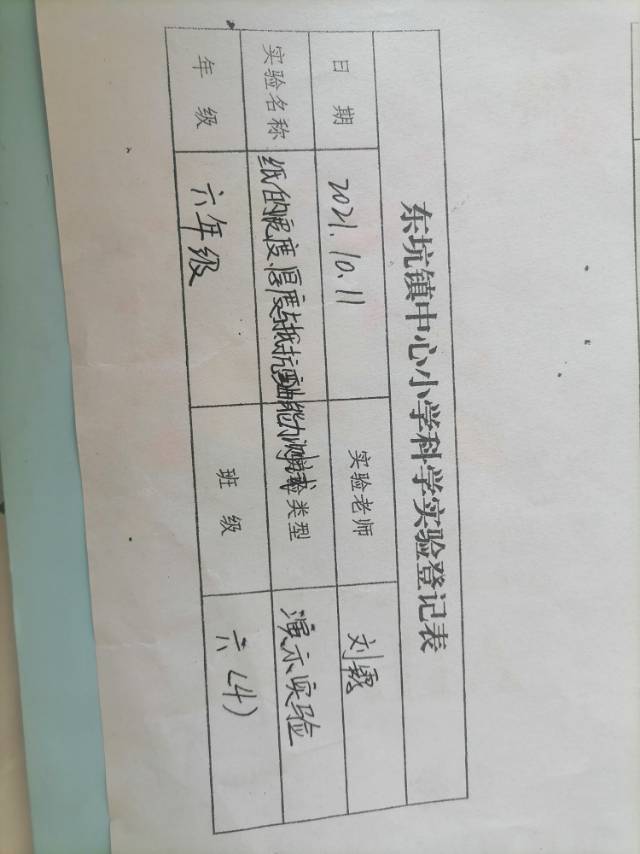 东坑镇中心小学科学实验登记表
日 期 2021.10.11 实验老师 刘霞
实验名称 纸的宽度、厚度与抵抗弯曲能力测试 类型 演示实验
年 级 六年级 班 级 六(4)